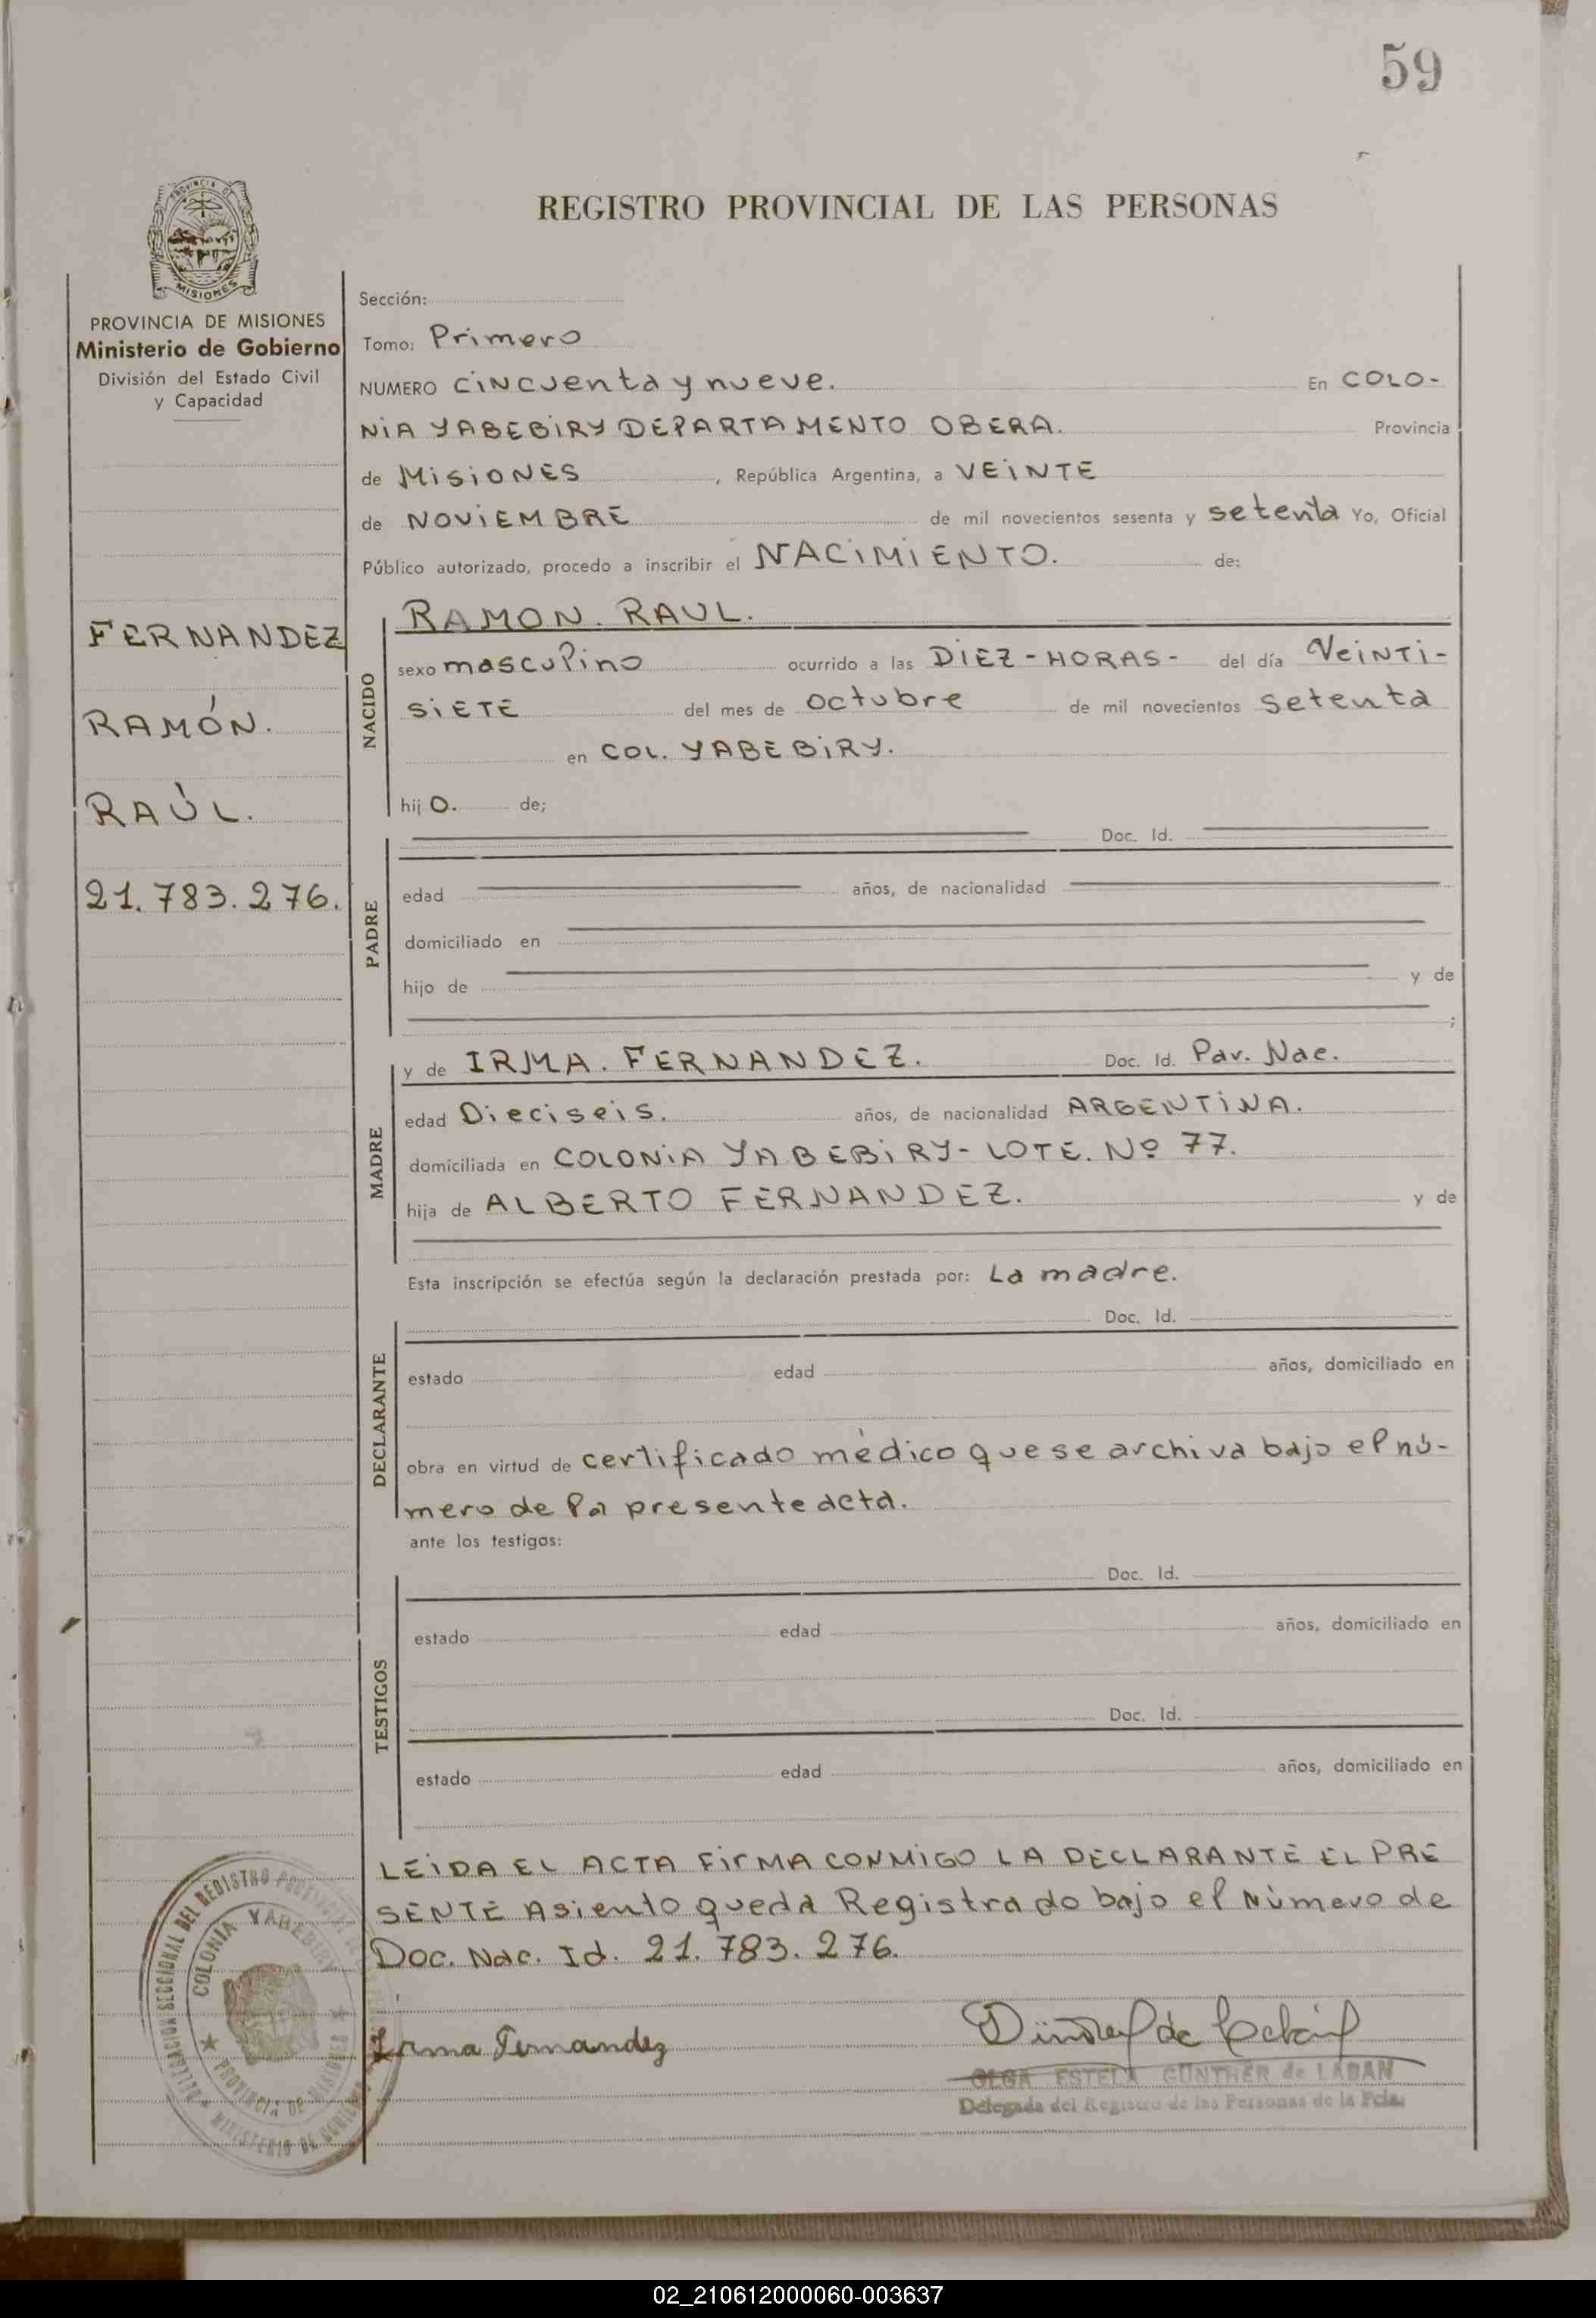 59
PROVINCIA DE
MISIONES
REGISTRO PROVINCIAL DE LAS PERSONAS
PROVINCIA DE MISIONES
Ministerio de Gobierno
División del Estado Civil
y Capacidad
FERNANDEZ
RAMÓN.
RAÚL.
21.783.276.
Sección:
Tomo: Primero
NUMERO CINCUENTA y nueve. En COLO-
NIA YABEBIRY DEPARTAMENTO OBERA. Provincia
de MISIONES, República Argentina, a VEINTE
de NOVIEMBRE de mil novecientos sesenta y setenta Yo, Oficial
Público autorizado, procedo a inscribir el NACIMIENTO. de:
NACIDO
RAMON. RAUL.
sexo masculino ocurrido a las DIEZ-HORAS- del día VEINTI-
SIETE del mes de octubre de mil novecientos setenta
en COL. YABEBIRY.
hijO. de;
PADRE
Doc. Id.
edad años, de nacionalidad
domiciliado en
hijo de y de
;
MADRE
y de IRMA. FERNANDEZ. Doc. Id. Pav. Nac.
edad Dieciseis. años, de nacionalidad ARGENTINA.
domiciliada en COLONIA YABEBIRY- LOTE. Nº 77.
hija de ALBERTO FERNANDEZ. y de
Esta inscripción se efectúa según la declaración prestada por: La madre.
DECLARANTE
Doc. Id.
estado edad años, domiciliado en
obra en virtud de certificado médico que se archiva bajo el nú-
mero de la presente acta.
ante los testigos:
TESTIGOS
Doc. Id.
estado edad años, domiciliado en
Doc. Id.
estado edad años, domiciliado en
LEIDA EL ACTA FIRMA CONMIGO LA DECLARANTE EL PRE
SENTE Asiento queda Registrado bajo el Número de
Doc. Nac. Id. 21.783.276.
DELEGACION SECCIONAL DEL REGISTRO PROVINCIAL
COLONIA YABEBURY
PROVINCIA DE MISIONES
MINISTERIO DE GOBIERNO
Irma Fernandez
OLGA ESTELA GUNTHER de LABAN
Delegada del Registro de las Personas de la Pcia.
02_210612000060-003637